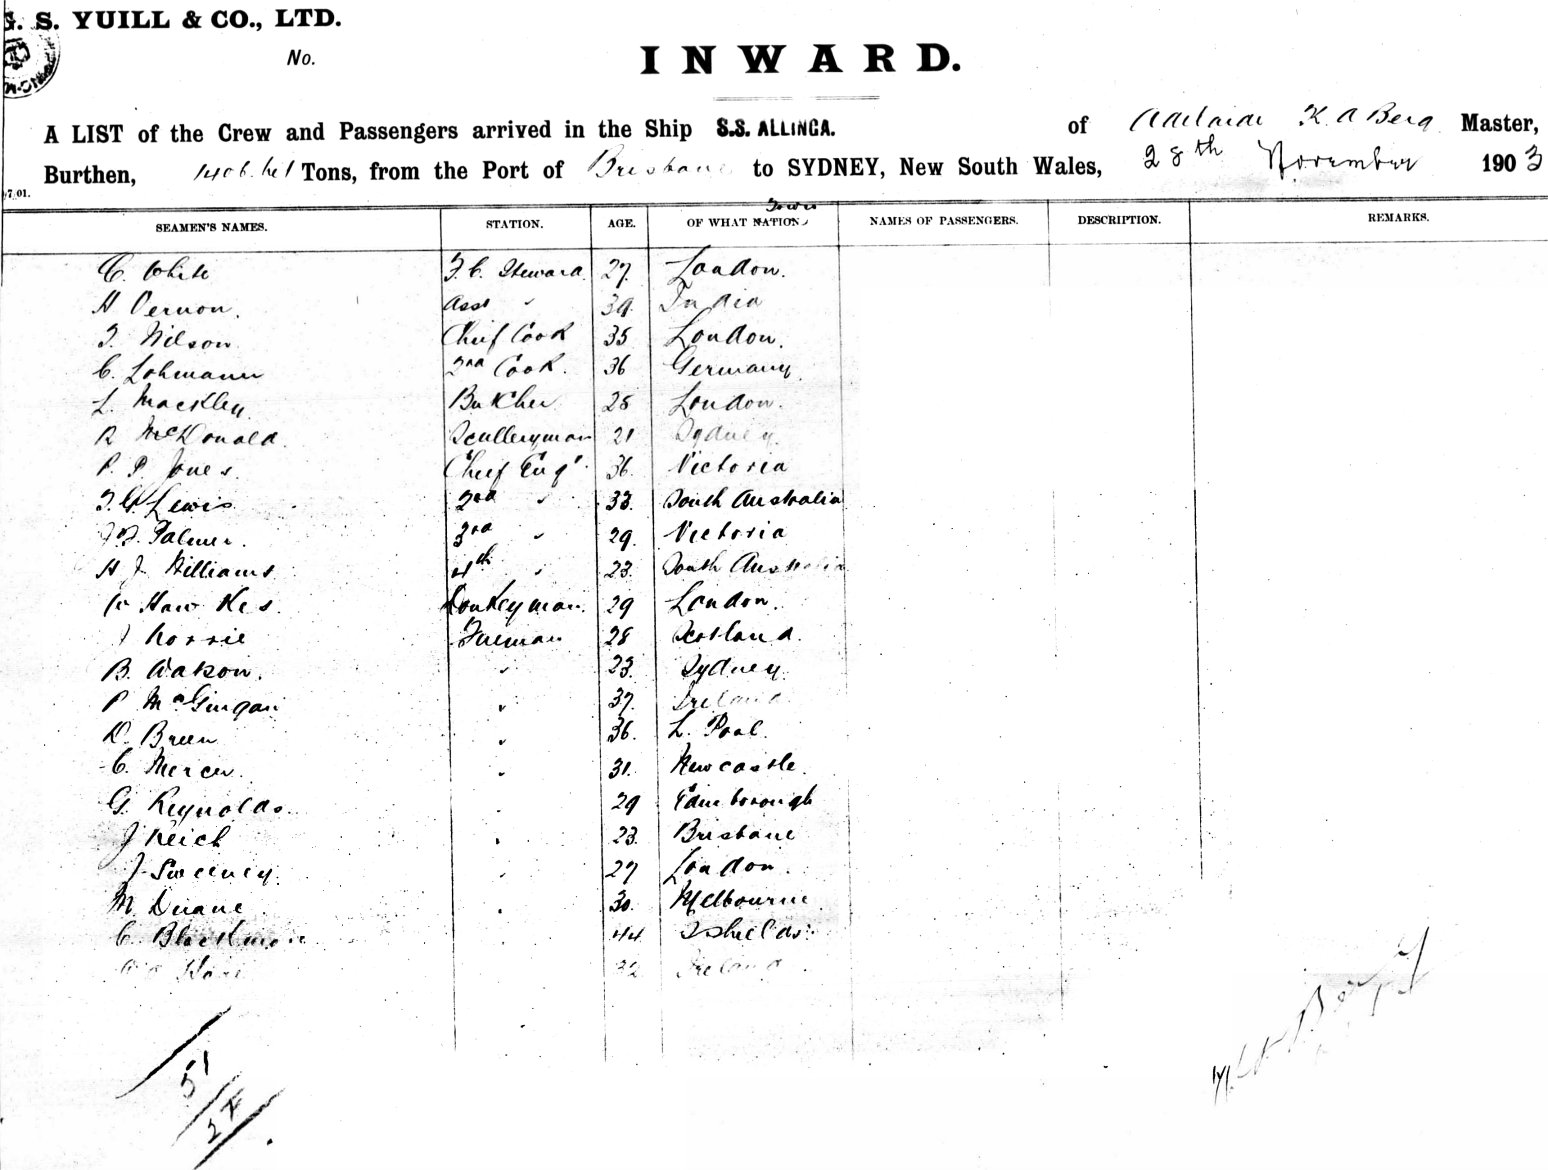 G. S. YUILL & CO., LTD.
No.
INWARD.
A LIST of the Crew and Passengers arrived in the Ship S.S. ALLINGA. of Adelaide K. A Berg Master,
Burthen, Tons, from the Port of Brisbane to SYDNEY, New South Wales, 28th November 1903
7.01.
SEAMEN'S NAMES. STATION. AGE. OF WHAT NATION Town NAMES OF PASSENGERS. DESCRIPTION. REMARKS.
C. White F. C. Steward 27. London.
H Vernon. Asst " 39. India
T. Wilson Chief Cook 35 London.
C. Lohmann 2nd Cook. 36 Germany
L. Mackley Butcher 28 London.
R McDonald. Sculleryman 21 Sydney.
P. P. Jones. Chief Engr 36. Victoria
T. G Lewis. 2nd " 33. South Australia
Palmer. 3rd " 29. Victoria
H J Williams 4th " 23. South Australia
W Hawkes. Donkeyman. 29 London.
J Norrie Fireman 28 Scotland.
B. Watson. " 23. Sydney.
P McGuigan " 37. Ireland.
D. Breen " 36. L. Pool.
C. Mercer. " 31. Newcastle.
G. Reynolds. " 29 Edinborough
J Keich " 23. Brisbane
J. Sweeney. " 27 London.
M. Duane. " 30. Melbourne
C. Blackmore " 44 S Shields.
32 Ireland.
51